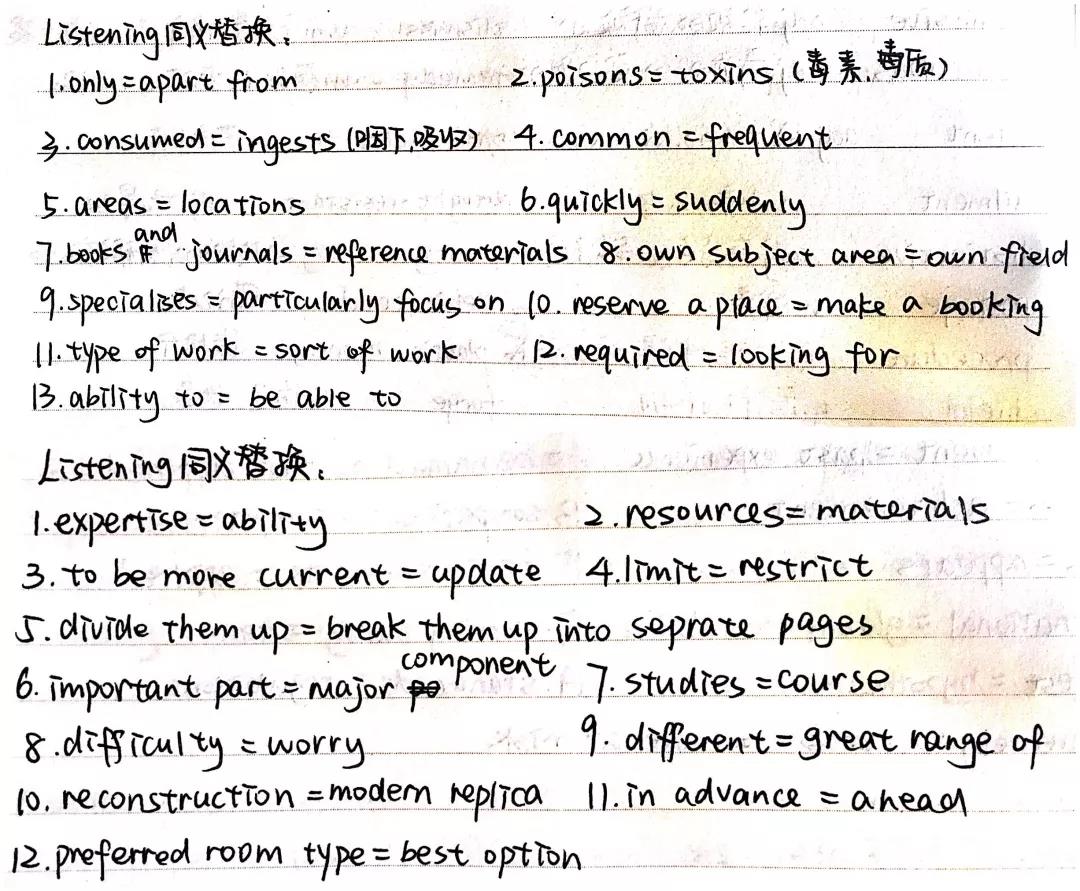 Listening同义替换：
1.only=apart from 2.poisons=toxins (毒素,毒质)
3.consumed=ingests (咽下,吸收) 4.common=frequent
5.areas=locations 6.quickly=suddenly
7.books and journals=reference materials 8.own subject area=own field
9.specialises=particularly focus on 10.reserve a place=make a booking
11.type of work=sort of work 12.required=looking for
13.ability to=be able to
Listening同义替换：
1.expertise=ability 2.resources=materials
3.to be more current=update 4.limit=restrict
5.divide them up=break them up into seprate pages
6.important part=major component 7.studies=course
8.difficulty=worry 9.different=great range of
10.reconstruction=modern replica 11.in advance=ahead
12.preferred room type=best option